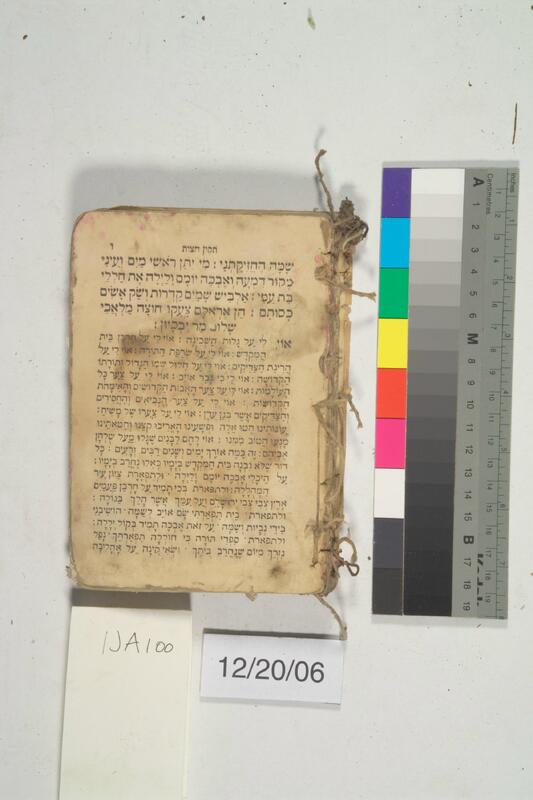 תקון חצות
ו
שַׁמָּה הֶחֱזִיקָתְנִי: מִי יִתֵּן רֹאשִׁי מַיִם וְעֵינִי
מְקוֹר דִּמְעָה וְאֶבְכֶּה יוֹמָם וָלַיְלָה אֵת חַלְלֵי
בַּת עַמִּי: אַלְבִּישׁ שָׁמַיִם קַדְרוּת וְשַׂק אָשִׂים
כְּסוּתָם: הֵן אֶרְאֶלָּם צָעֲקוּ חוּצָה מַלְאֲכֵי
שָׁלוֹם מַר יִבְכָּיוּן:
אוֹי לִי עַל גָּלוּת הַשְּׁכִינָה: אוֹי לִי עַל חֻרְבַּן בֵּית
הַמִּקְדָּשׁ: אוֹי לִי עַל שְׂרֵפַת הַתּוֹרָה: אוֹי לִי עַל
הֲרִיגַת הַצַּדִּיקִים: אוֹי לִי עַל חִלּוּל שְׁמוֹ הַגָּדוֹל וְתוֹרָתוֹ
הַקְּדוֹשָׁה: אוֹי לִי כִּי גָבַר אוֹיֵב: אוֹי לִי עַל צַעַר כָּל
הָעוֹלָמוֹת: אוֹי לִי עַל צַעַר הָאָבוֹת הַקְּדוֹשִׁים וְהָאִמָּהוֹת
הַקְּדוֹשׁוֹת: אוֹי לִי עַל צַעַר הַנְּבִיאִים וְהַחֲסִידִים
וְהַצַּדִּיקִים אֲשֶׁר בְּגַן עֵדֶן: אוֹי לִי עַל צַעֲרוֹ שֶׁל מָשִׁיחַ:
עֲוֹנוֹתֵינוּ הִטּוּ אֵלֶּה וּפְשָׁעֵינוּ הֶאֱרִיכוּ קִצֵּנוּ וְחַטֹּאתֵינוּ
מָנְעוּ הַטּוֹב מִמֶּנּוּ: אוֹי לָהֶם לַבָּנִים שֶׁגָּלוּ מֵעַל שֻׁלְחַן
אֲבִיהֶם: זֶה כַּמָּה אוֹרֶךְ יָמִים וְשָׁנִים רַבִּים כָּל
דּוֹר שֶׁלֹּא נִבְנָה בֵּית הַמִּקְדָּשׁ בְּיָמָיו כְּאִלּוּ נֶחֱרַב בְּיָמָיו:
עַל הֵיכָלִי אֶבְכֶּה יוֹמָם וָלַיְלָה וּלְתִפְאֶרֶת צִיּוֹן עִיר
הַמְהֻלָּלָה: וּלְתִפְאֶרֶת בְּכִי תַמִּיד עַל חֻרְבַּן פַּעֲמַיִם
אֶרֶץ צְבִי צְבִי יְרוּשָׁלַיִם וְעַל עַמְּךָ אֲשֶׁר הָלַךְ בַּגּוֹלָה:
וּלְתִפְאֶרֶת בֵּית תִּפְאַרְתִּי שָׂם אוֹיֵב לְשַׁמָּה: הוֹשִׁיבַנִי
בִּידֵי נְבָיוֹת וְשַׁמָּה: עַל זֹאת אֶבְכֶּה תָמִיד בְּקוֹל יְלָלָה:
וּלְתִפְאֶרֶת סִפְרֵי תוֹרָה כִּי חוּלְּלָה תִּפְאַרְתֵּךְ נָפַל
נִזְרֵךְ מִיּוֹם שֶׁנֶּחֱרַב בֵּיתֵךְ וּשְׂאִי קִינָה עַל אָהֳלֵיבָה
IJA100
12/20/06
Inches
Centimetres
1 2 3 4 5 6 7
A 1 2 3 4 5 6 M 8 9 10 11 12 13 14 15 B 17 18 19